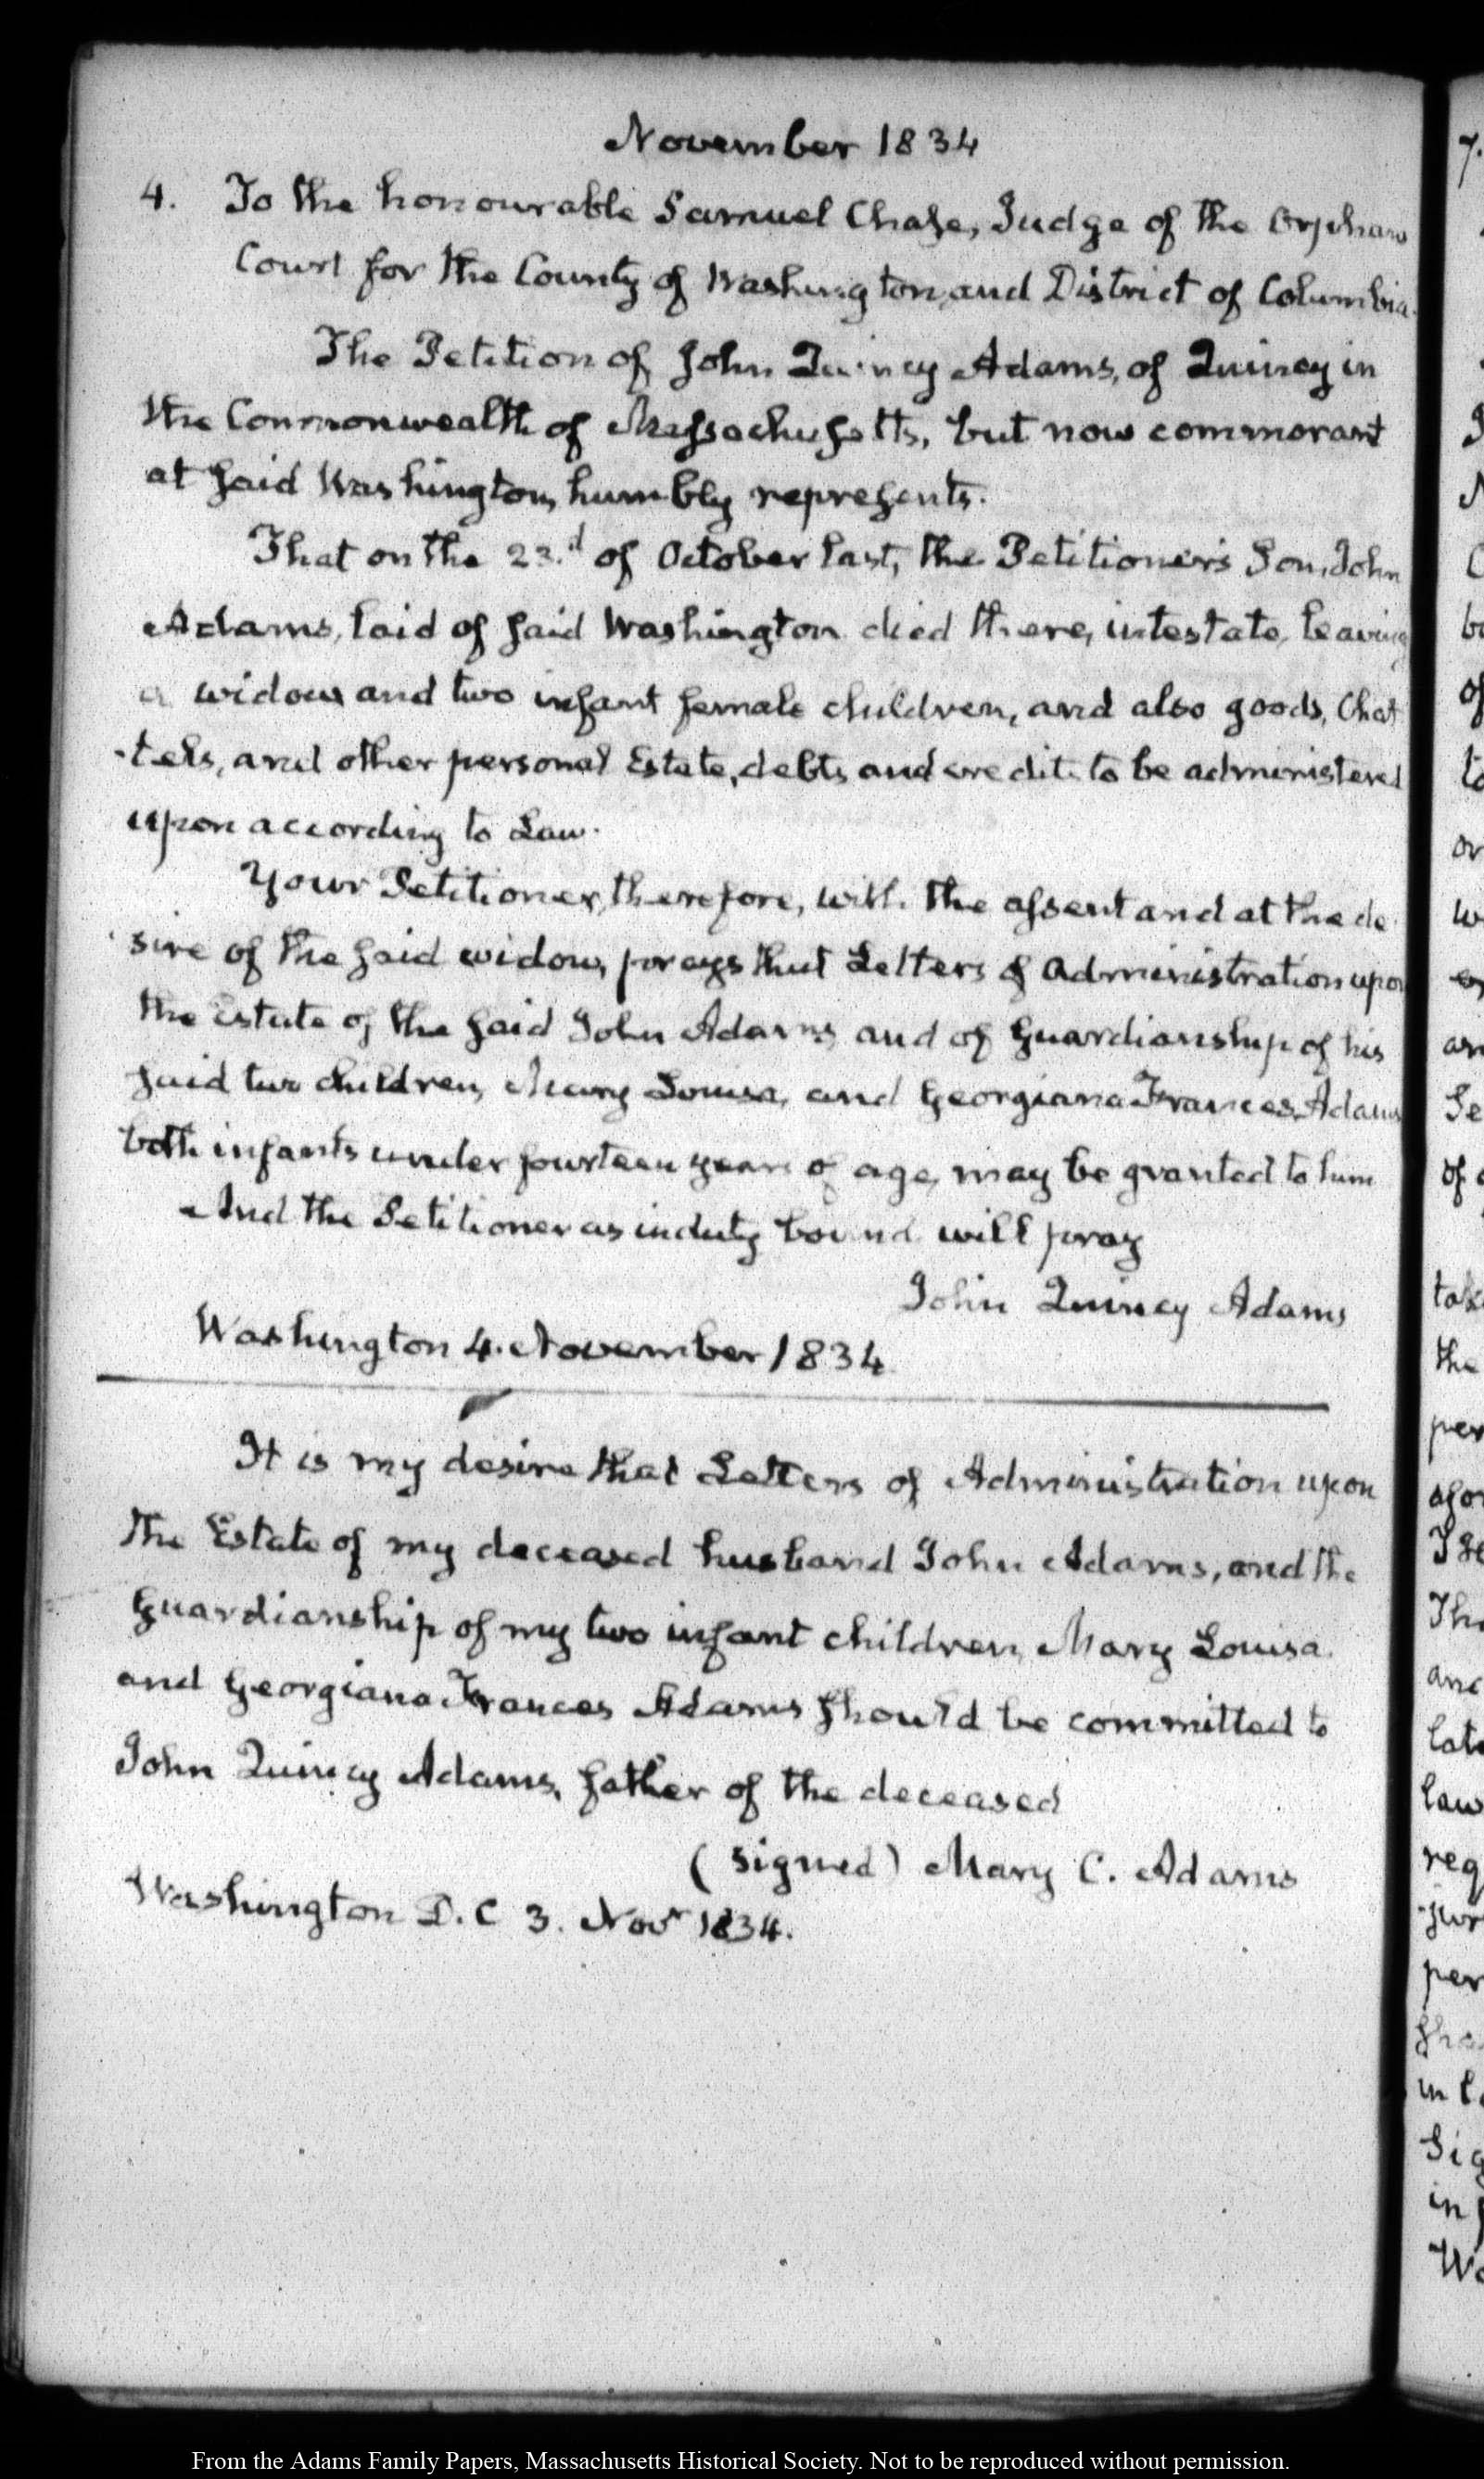 November 1834
4. To the honourable Samuel Chase, Judge of the Orphans
Court for the County of Washington, and District of Columbia.
The Petition of John Quincy Adams, of Quincy in
the Commonwealth of Massachusetts, but now commorant
at said Washington, humbly represents.
That on the 23.d of October last, the Petitioner's Son, John
Adams, laid of said Washington died there, intestate, leaving
a widow and two infant female children, and also goods, Chat
-tels, and other personal Estate, debts and credits to be administered
upon according to Law.
Your Petitioner, therefore, with the assent and at the de
sire of the said widow, prays that Letters of Administration upon
the estate of the said John Adams and of Guardianship of his
said two children, Mary Louisa, and Georgiana Frances Adams
both infants under fourteen years of age, may be granted to him
And the Petitioner as in duty bound will pray
John Quincy Adams
Washington 4. November 1834
It is my desire that Letters of Administration upon
the Estate of my deceased husband John Adams, and the
Guardianship of my two infant children, Mary Louisa
and Georgiana Frances Adams should be committed to
John Quincy Adams, father of the deceased
(signed) Mary C. Adams
Washington D.C 3. Novr 1834.
7.
of
the
per
Tho
late
law
req
per
in
From the Adams Family Papers, Massachusetts Historical Society. Not to be reproduced without permission.